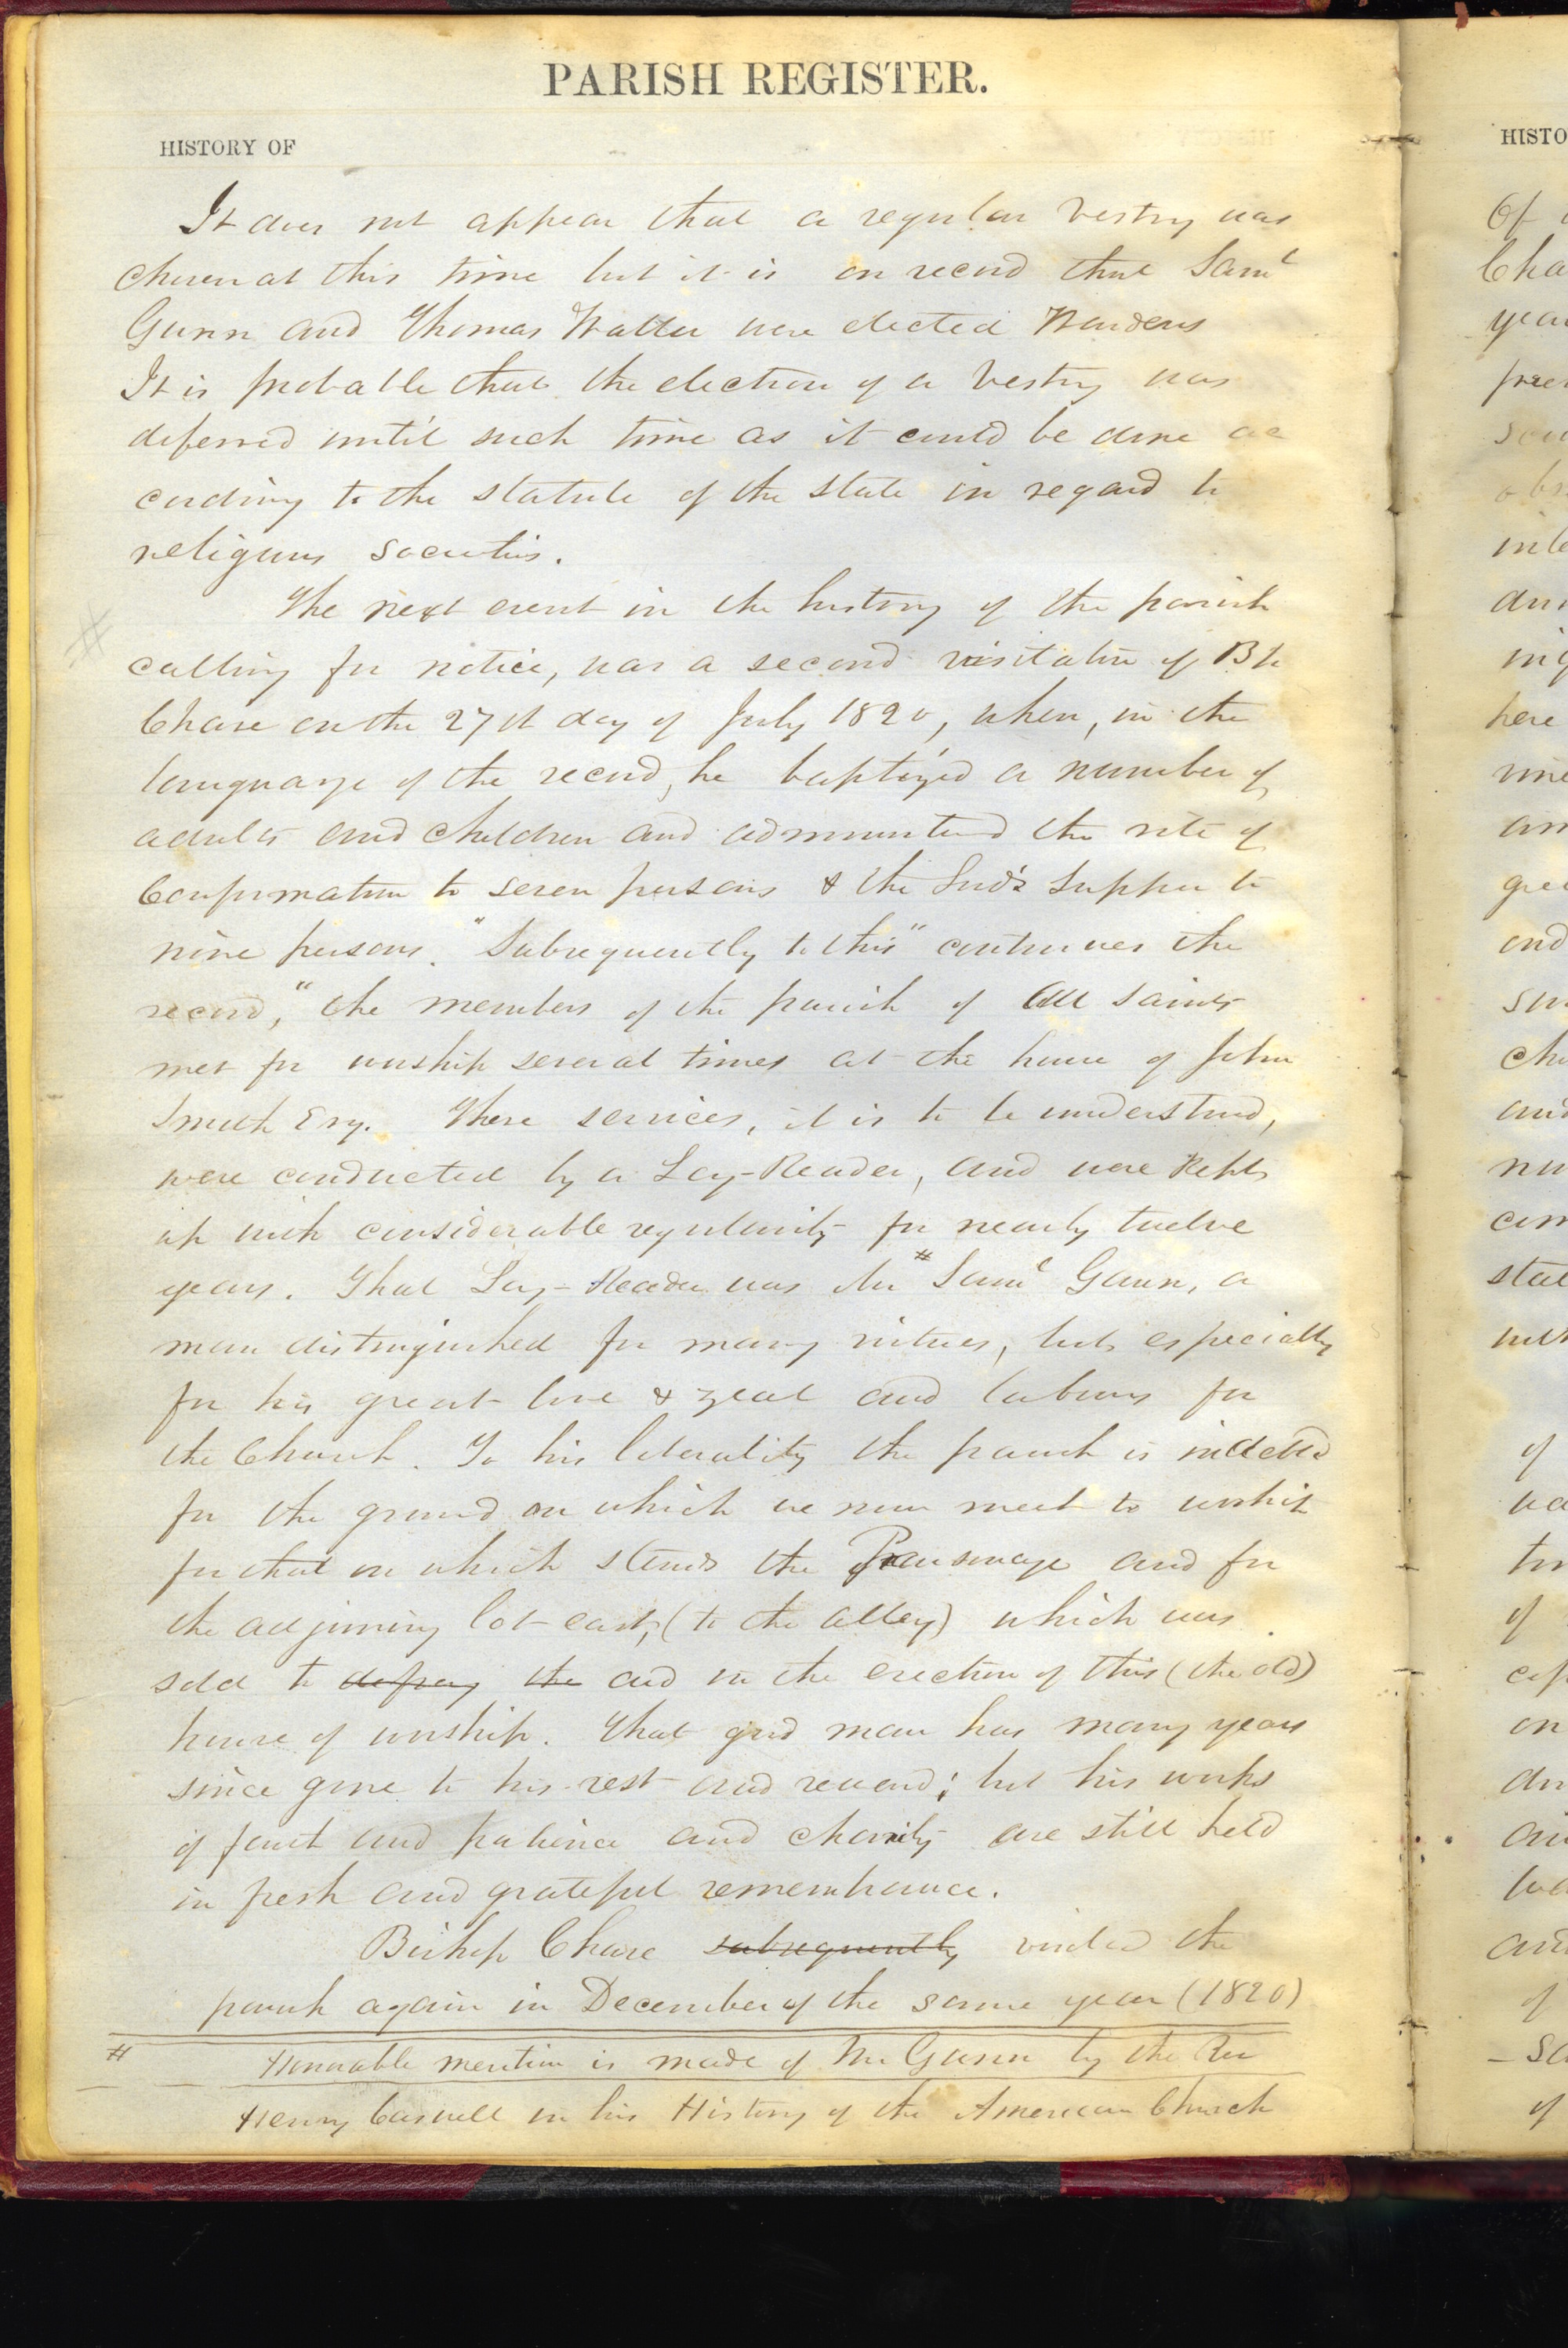 PARISH REGISTER.
HISTORY OF
It does not appear that a regular Vestry was
chosen at this time but it is on record that Saml
Gunn and Thomas Waller were elected Wardens
It is probable that the election of a Vestry was
deferred until such time as it could be done ac
cording to the statute of the state in regard to
religious societies.
The next event in the history of the parish
#
calling for notice, was a second visitation of Bp
Chase on the 27th day of July 1820, when, in the
language of the record, he baptized a number of
adults and children and administered the rite of
Confirmation to seven persons & the Lord's Supper to
nine persons. "Subsequently to this" continues the
record, "the members of the parish of All Saints
met for worship several times at the house of John
Smith Esq. These services, it is to be understood,
were conducted by a Lay-Reader, and were kept
up with considerable regularity for nearly twelve
years. That Lay-Reader was Mr # Saml Gunn, a
man distinguished for many virtues, but especially
for his great love & zeal and labours for
the Church. To his liberality the parish is indebted
for the ground on which we now meet to worship
for that on which stands the Parsonage and for
the adjoining lot east, (to the alley) which was
sold to defray the aid in the erection of this (the old)
house of worship. That good man has many years
since gone to his rest and reward; but his works
of faith and patience and charity are still held
in fresh and grateful remembrance.
Bishop Chase subsequently visited the
parish again in December of the same year (1820)
# Honorable mention is made of Mr Gunn by the Rev
Henry Caswell in his History of the American Church
HISTO